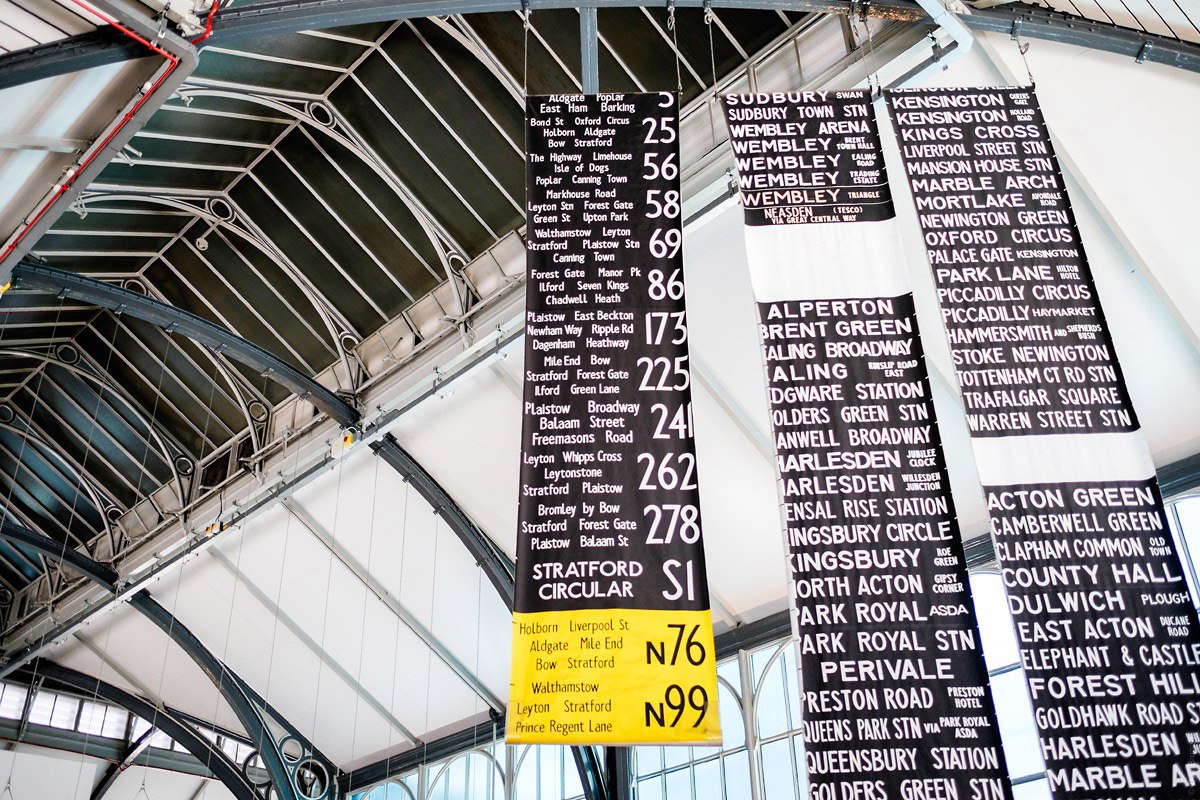 Aldgate Poplar 5
East Ham Barking
Bond St Oxford Circus
Holborn Aldgate 25
Bow Stratford
The Highway Limehouse
Isle of Dogs 56
Poplar Canning Town
Markhouse Road
Leyton Stn Forest Gate 58
Green St Upton Park
Walthamstow Leyton
Stratford Plaistow Stn 69
Canning Town
Forest Gate Manor Pk
Ilford Seven Kings 86
Chadwell Heath
Plaistow East Beckton
Newham Way Ripple Rd 173
Dagenham Heathway
Mile End Bow
Stratford Forest Gate 225
Ilford Green Lane
Plaistow Broadway
Balaam Street 241
Freemasons Road
Leyton Whipps Cross
Leytonstone 262
Stratford Plaistow
Bromley by Bow
Stratford Forest Gate 278
Plaistow Balaam St
STRATFORD
CIRCULAR S1
Holborn Liverpool St
Aldgate Mile End N76
Bow Stratford
Walthamstow
Leyton Stratford N99
Prince Regent Lane
SUDBURY SWAN
SUDBURY TOWN STN
WEMBLEY ARENA
WEMBLEY BRENT TOWN HALL
WEMBLEY EALING ROAD
WEMBLEY TRADING ESTATE
WEMBLEY TRIANGLE
NEASDEN (TESCO)
VIA GREAT CENTRAL WAY
ALPERTON
BRENT GREEN
EALING BROADWAY
EALING RUISLIP ROAD EAST
EDGWARE STATION
GOLDERS GREEN STN
HANWELL BROADWAY
HARLESDEN JUBILEE CLOCK
HARLESDEN WILLESDEN JUNCTION
KENSAL RISE STATION
KINGSBURY CIRCLE
KINGSBURY ROE GREEN
NORTH ACTON GIPSY CORNER
PARK ROYAL ASDA
PARK ROYAL STN
PERIVALE
PRESTON ROAD PRESTON HOTEL
QUEENS PARK STN VIA PARK ROYAL ASDA
QUEENSBURY STATION
GOLDERS GREEN STN
KENSINGTON QUEENS GATE
KENSINGTON HOLLAND ROAD
KINGS CROSS
LIVERPOOL STREET STN
MANSION HOUSE STN
MARBLE ARCH
MORTLAKE AVONDALE ROAD
NEWINGTON GREEN
OXFORD CIRCUS
PALACE GATE KENSINGTON
PARK LANE HILTON HOTEL
PICCADILLY CIRCUS
PICCADILLY HAYMARKET
HAMMERSMITH AND SHEPHERDS BUSH
STOKE NEWINGTON
TOTTENHAM CT RD STN
TRAFALGAR SQUARE
WARREN STREET STN
ACTON GREEN
CAMBERWELL GREEN
CLAPHAM COMMON OLD TOWN
COUNTY HALL
DULWICH PLOUGH
EAST ACTON DUCANE ROAD
ELEPHANT & CASTLE
FOREST HILL
GOLDHAWK ROAD S
HARLESDEN
MARBLE AR